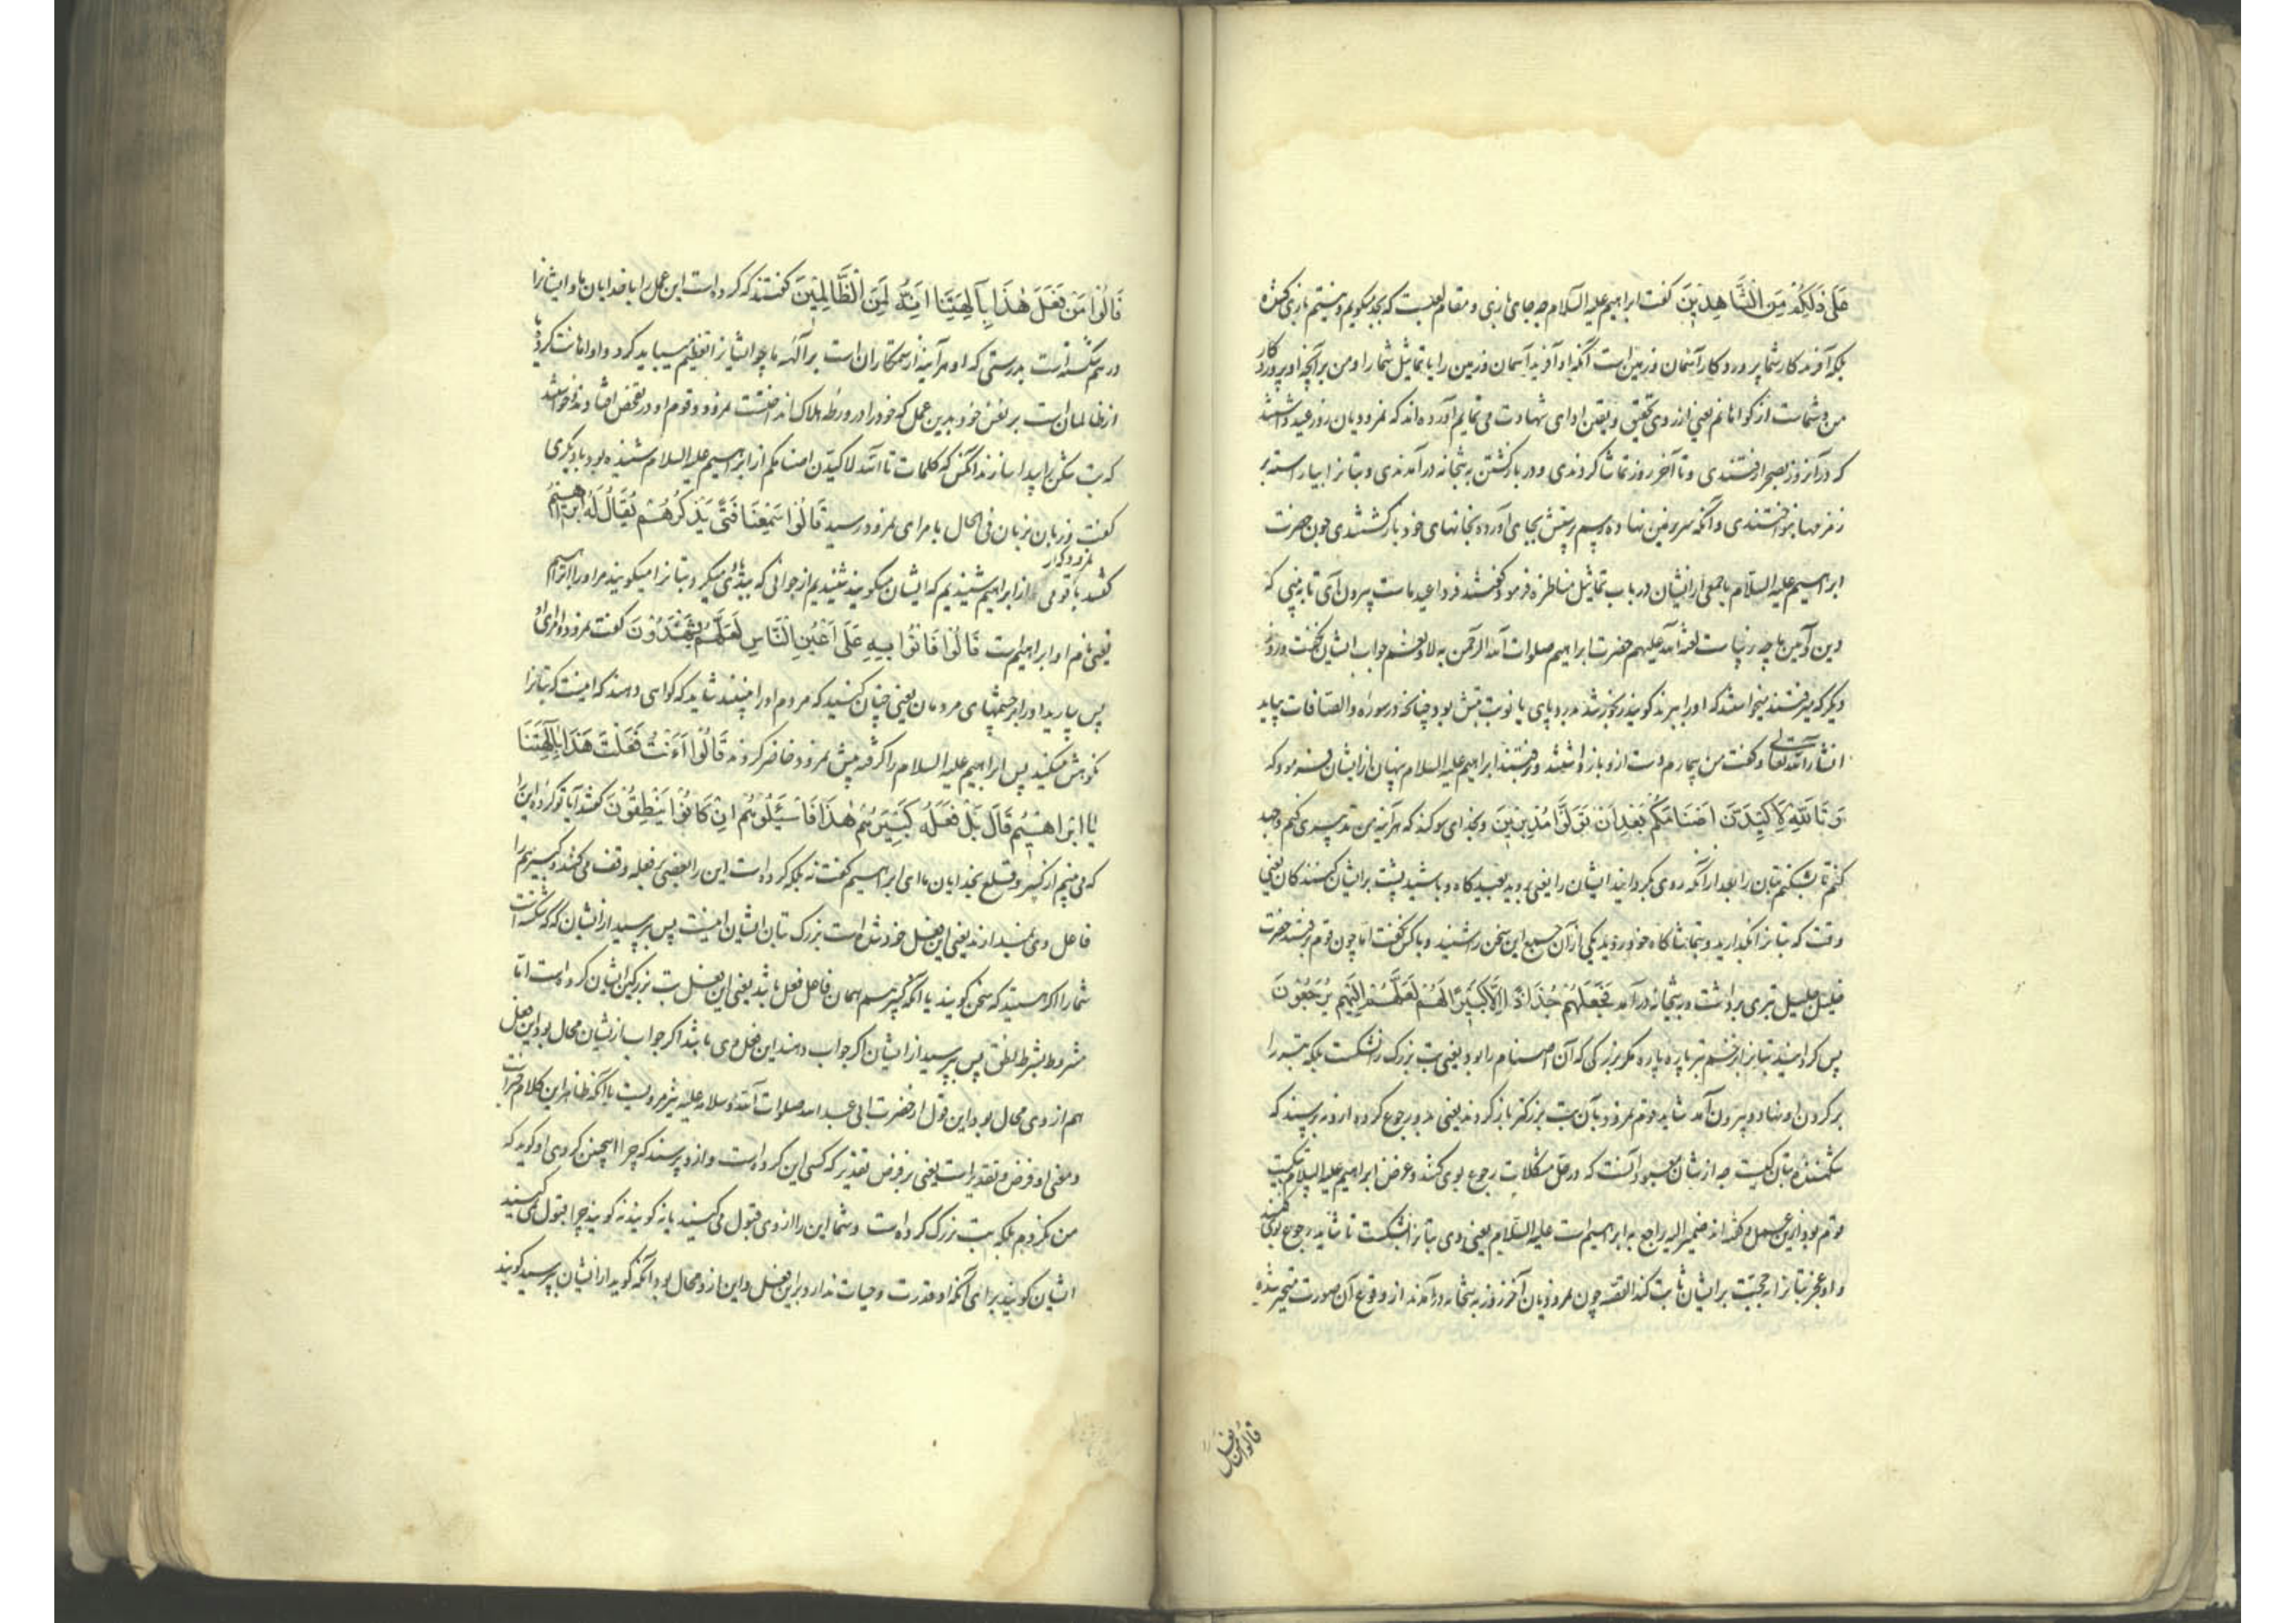 عَلَى ذَلِكُمْ مِنَ الشَّاهِدِينَ گفت ابراهیم علیه السلام چه جای بازی و مقام لعبست که بجد میگویم و نیستم بازی کننده
بلکه آفریدگار شما پروردگار آسمان و زمین است آنکه او آفرید آسمان و زمین را یا تماثیل شما را و من بر آنچه او پروردگار
من و شماست از گواهانم یعنی از روی تحقیق و یقین ادای شهادت می نمایم آورده اند که نمرودیان روز عید داشتند
که در آن روز بصحرا رفتندی و تا آخر روز تماشا کردندی و در بازگشتن به بتخانه در آمدندی و بتانرا بیاراسته بر
زمزمها بنواختندی و آنگه سر بر زمین نهاده رسم پرستش بجای آورده بخانهای خود بازگشتندی چون حضرت
ابراهیم علیه السلام با جمعی از ایشان در باب تماثیل مناظره فرمود گفتند فردا عید ماست بیرون آی تا ببینی که
دین و آیین ما چه زیباست لعنة الله علیهم حضرت ابراهیم صلوات الله الرحمن به لا و نعم جواب ایشان نگفت و روز
دیگر که میرفتند میخواستند که او را ببرند گویند رنجور شد بدرد پای یا نوبت تبش بود چنانچه در سوره والصافات بیاید
انشاءالله تعالی و گفت من بیمارم دست از و باز داشتند و رفتند ابراهیم علیه السلام پنهان از ایشان فرمود که
وَ تَاللَّهِ لَأَكِيدَنَّ أَصْنَامَكُمْ بَعْدَ أَنْ تُوَلُّوا مُدْبِرِينَ و بخدای سوگند که هر آینه من تدبیری کنم و جهد
کنم تا بشکنم بتان را بعد از آنکه روی بگردانید ایشان را یعنی بروید بعیدگاه و باشید پشت بر ایشان کنندگان یعنی
وقت که بتانرا بگذارید و بتماشاگاه خود روید یکی از آن جمع این سخن را شنید و با کس نگفت اما چون قوم برفتند حضرت
خلیل جلیل تبری برداشت و به بتخانه در آمد فَجَعَلَهُمْ جُذَاذًا إِلَّا كَبِيرًا لَهُمْ لَعَلَّهُمْ إِلَيْهِ يَرْجِعُونَ
پس گردانید بتانرا بزخم تبر پاره پاره مگر بزرگی که آن اصنام را بود یعنی بت بزرگ را نشکست بلکه تبر را
بر گردن او نهاد و بیرون آمد شاید قوم نمرود بآن بت بزرگتر باز گردند یعنی بدو رجوع کرده از و بپرسند که
شکننده بتان کیست چه از شان معبود آنست که در حل مشکلات رجوع بوی کنند و غرض ابراهیم علیه السلام تبکیت
قوم بود ازین عمل و گفته اند ضمیر الیه راجع به ابراهیم است علیه السلام یعنی وی بتانرا بشکست تا شاید رجوع بوی کنند
و او عجز بتانرا حجت بر ایشان ثابت کند القصه چون نمرودیان آخر روز به بتخانه در آمدند از وقوع آن صورت متحیر شده
قالوا من فعل
قَالُوا مَنْ فَعَلَ هَٰذَا بِآلِهَتِنَا إِنَّهُ لَمِنَ الظَّالِمِينَ گفتند که کرده است این عمل را با خدایان ما و ایشانرا
در هم شکسته است بدرستی که او هر آینه از ستمکاران است بر آلهه ما چو ایشانرا تعظیم میباید کرد و او اهانت کرد یا
از ظالمان است بر نفس خود بدین عمل که خود را در ورطه هلاک انداخت نمرود و قوم او در تفحص افتادند خواستند
که بت شکن را پیدا سازند آنکس که کلمات تالله لاکیدن اصنامکم از ابراهیم علیه السلام شنیده بود با دیگری
گفت و زبان بزبان فی الحال بامرای نمرود رسید قَالُوا سَمِعْنَا فَتًى يَذْكُرُهُمْ يُقَالُ لَهُ إِبْرَاهِيمُ
گفتند با قومی نمرود که از ابراهیم شنیدیم که ایشان میگویند شنیدیم از جوانی که ببدی یاد میکرد بتانرا میگویند مر او را ابراهیم
یعنی نام او ابراهیم است قَالُوا فَأْتُوا بِهِ عَلَىٰ أَعْيُنِ النَّاسِ لَعَلَّهُمْ يَشْهَدُونَ گفت نمرود و امرای او
پس بیارید او را بر چشمهای مردمان یعنی چنان کنید که مردم او را ببینند شاید که گواهی دهند که اینست که بتانرا
نکوهش میکند پس ابراهیم علیه السلام را گرفته پیش نمرود حاضر کردند قَالُوا أَأَنْتَ فَعَلْتَ هَٰذَا بِآلِهَتِنَا
يَا إِبْرَاهِيمُ قَالَ بَلْ فَعَلَهُ كَبِيرُهُمْ هَٰذَا فَاسْئَلُوهُمْ إِنْ كَانُوا يَنْطِقُونَ گفتند آیا تو کرده این را
که می بینیم از کسر و قلع بخدایان ما ای ابراهیم گفت نه بلکه کرده است این را بعضی بر فعله وقف می کنند و کبیرهم را
فاعل وی نمیدارند یعنی این فعل خود شده است بزرگ بتان ایشان اینست پس بپرسید از ایشان که که شکسته است
شما را اگر هستید که سخن گویند یا آنکه کبیرهم همان فاعل فعل باشد یعنی این فعل بت بزرگین ایشان کرده است اما
مشروط بشرط نطق پس بپرسید از ایشان اگر جواب دهند این فعل وی باشد اگر جواب از ایشان محال بود این فعل
هم از وی محال بود این قول از حضرت ابی عبدالله صلوات الله و سلامه علیه نیز مرویست یا آنکه ظاهر این کلام خبر است
و معنی او فرض و تقدیر است یعنی بر فرض تقدیر که کسی این کرده است و از و پرسند که چرا اینچنین کردی او گوید که
من نکردم بلکه بت بزرگ کرده است و شما این را از وی قبول می کنید یا نه گویند نه گویند چرا قبول نمی کنید
ایشان گویند برای آنکه او قدرت و حیات ندارد بر این فعل و این از و محال بود آنگه گوید از ایشان بپرسید گویند